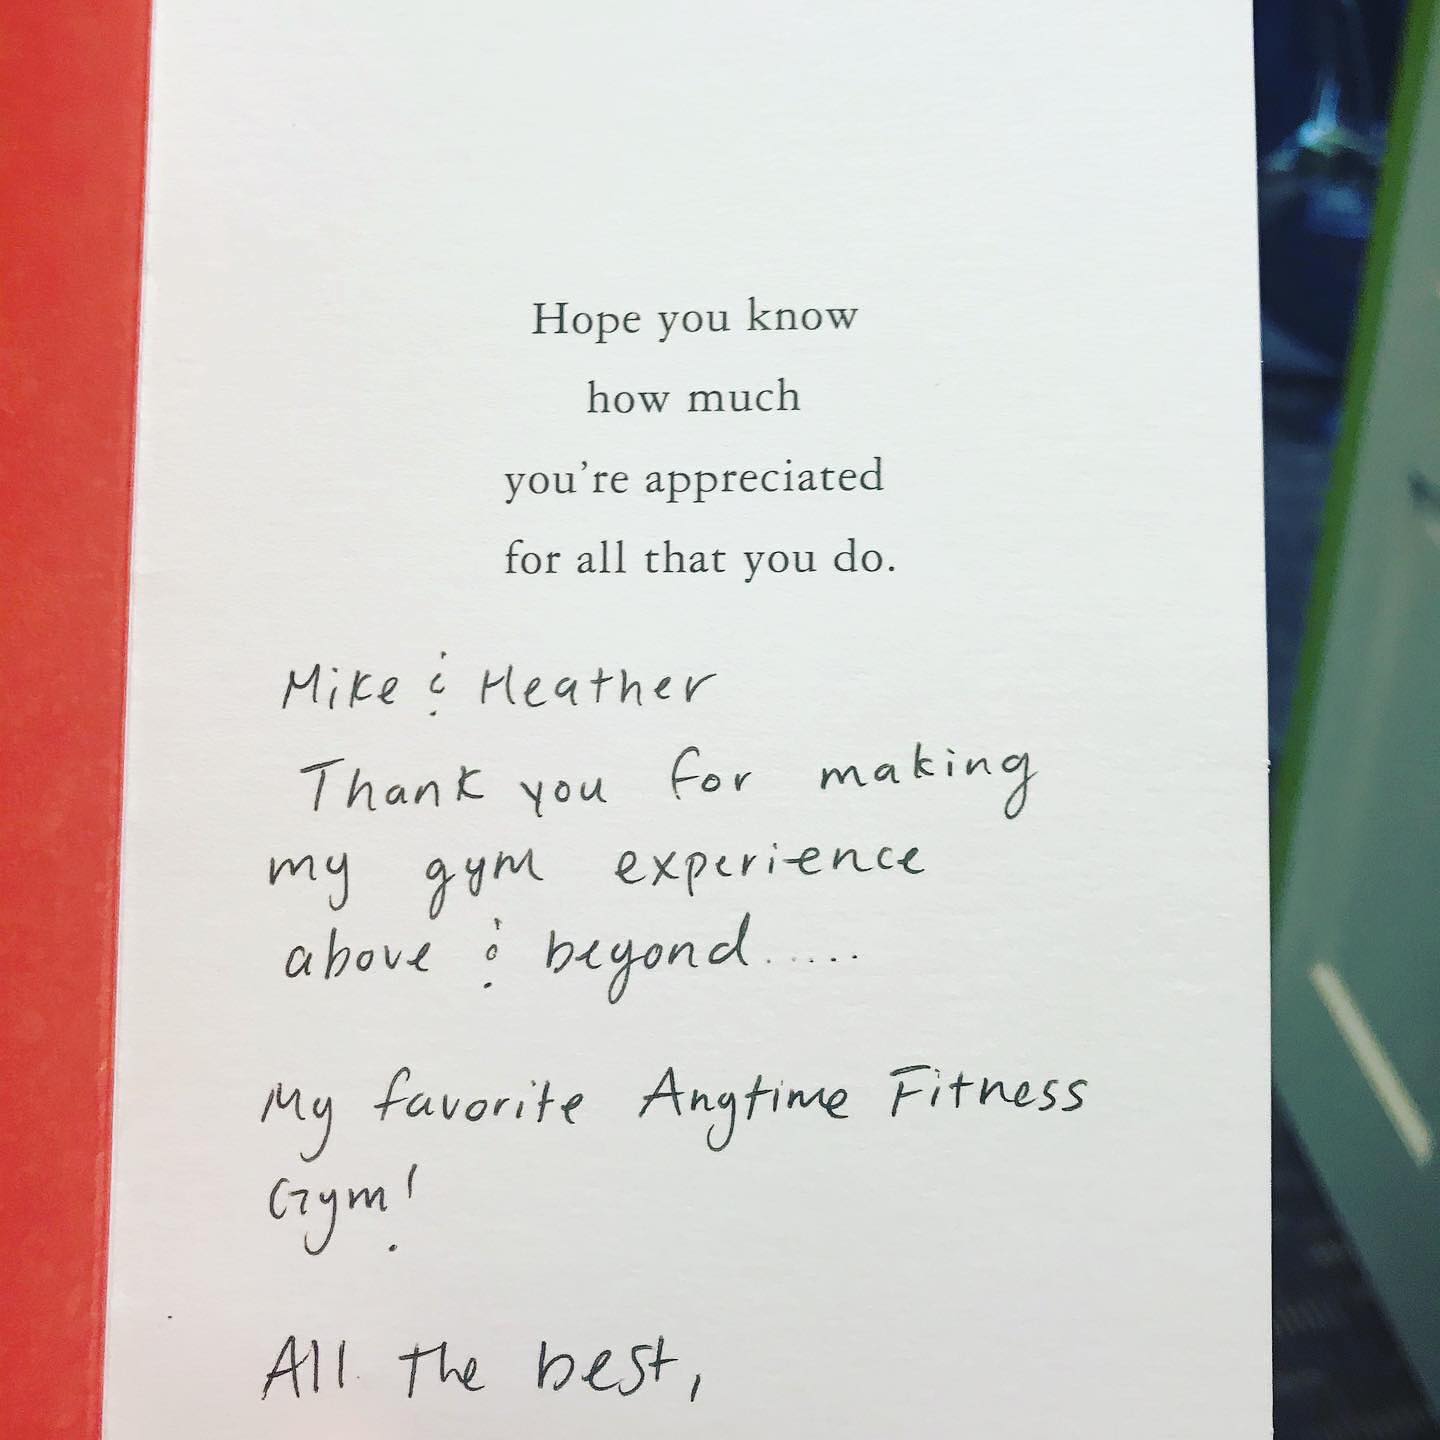 Hope you know
how much
you're appreciated
for all that you do.
Mike & Heather
Thank you for making
my gym experience
above & beyond.....
My favorite Anytime Fitness
Gym!
All the best,